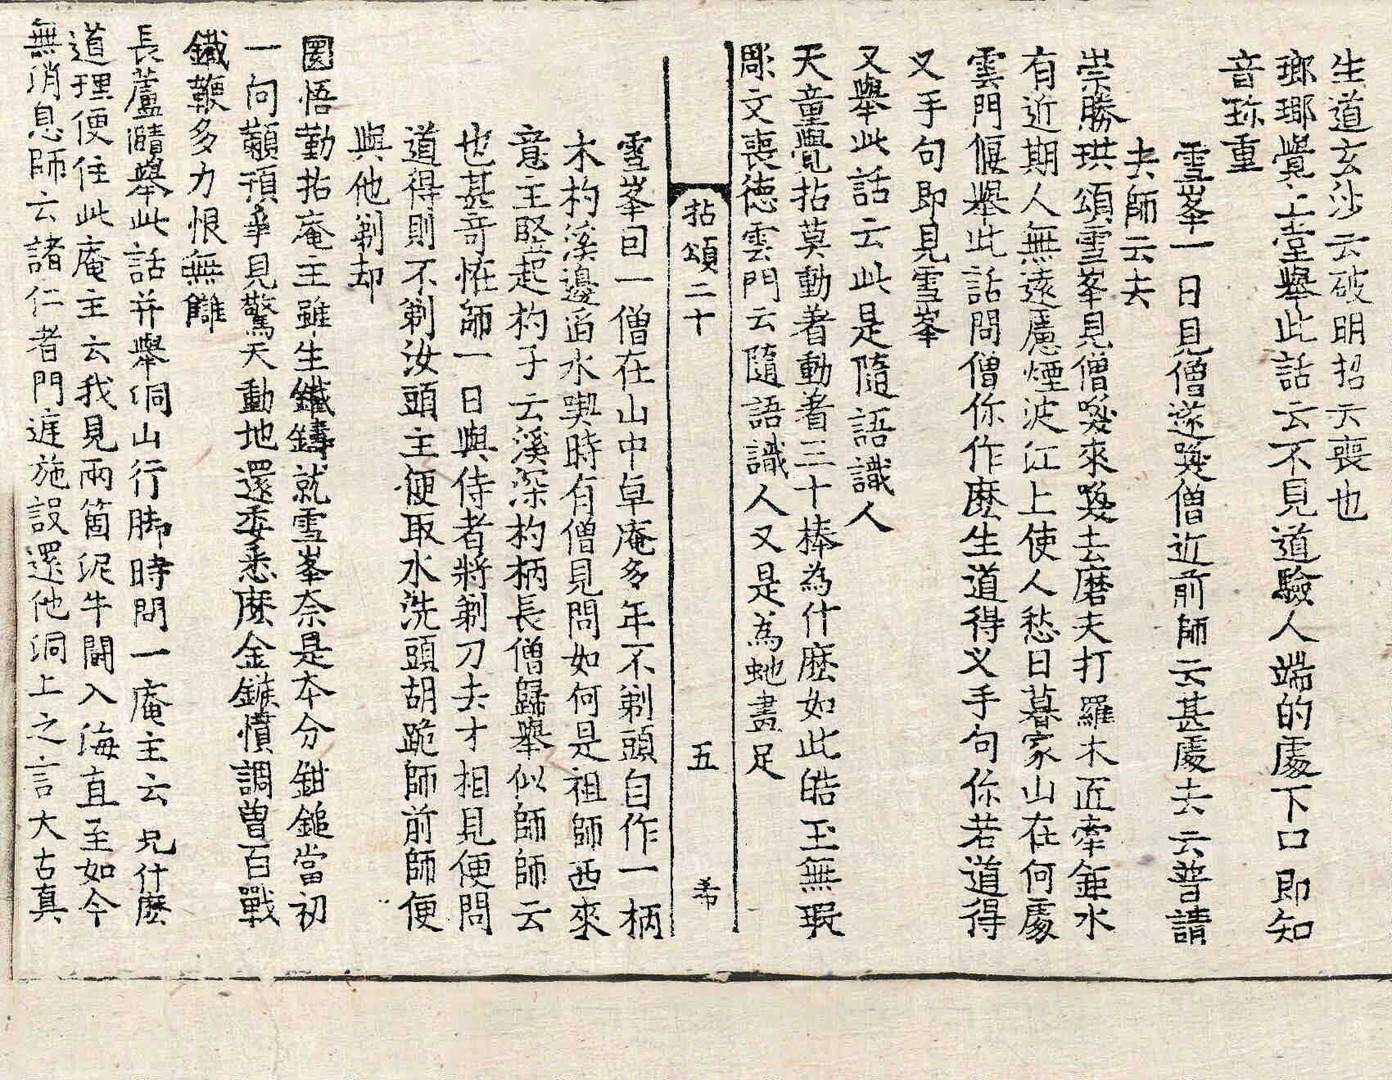 生道玄沙云破明招云喪也
瑯瑘覺上堂舉此話云不見道驗人端的處下口即知
音珎重
雪峯一日見僧遂喚僧近前師云甚處去云普請
去師云去
崇勝珙頌雪峯見僧喚來喚去磨夫打羅木匠牽鉅水
有近期人無遠慮煙波江上使人愁日暮家山在何處
雲門偃舉此話問僧你作麽生道得义手句你若道得
义手句即見雪峯
又舉此話云此是隨語識人
天童覺拈莫動着動着三十棒為什麽如此皓玉無瑕
彫文喪徳雲門云隨語識人又是為虵畵足
拈頌二十 五 希
雪峯囙一僧在山中卓庵多年不剃頭自作一柄
木杓溪邊舀水喫時有僧見問如何是祖師西來
意主竪起杓子云溪深杓柄長僧歸舉似師師云
也甚竒恠師一日與侍者將剃刀去才相見便問
道得則不剃汝頭主便取水洗頭胡跪師前師便
與他剃却
圜悟勤拈庵主雖生鐵鑄就雪峯奈是本分鉗鎚當初
一句顢頇爭見驚天動地還委悉麽金鏃慣調曽百戰
鐵鞭多力恨無讎
長蘆賾舉此話并舉洞山行脚時問一庵主云見什麽
道理便住此庵主云我見兩箇泥牛鬪入海直至如今
無消息師云諸仁者門庭施設還他洞上之言大古真